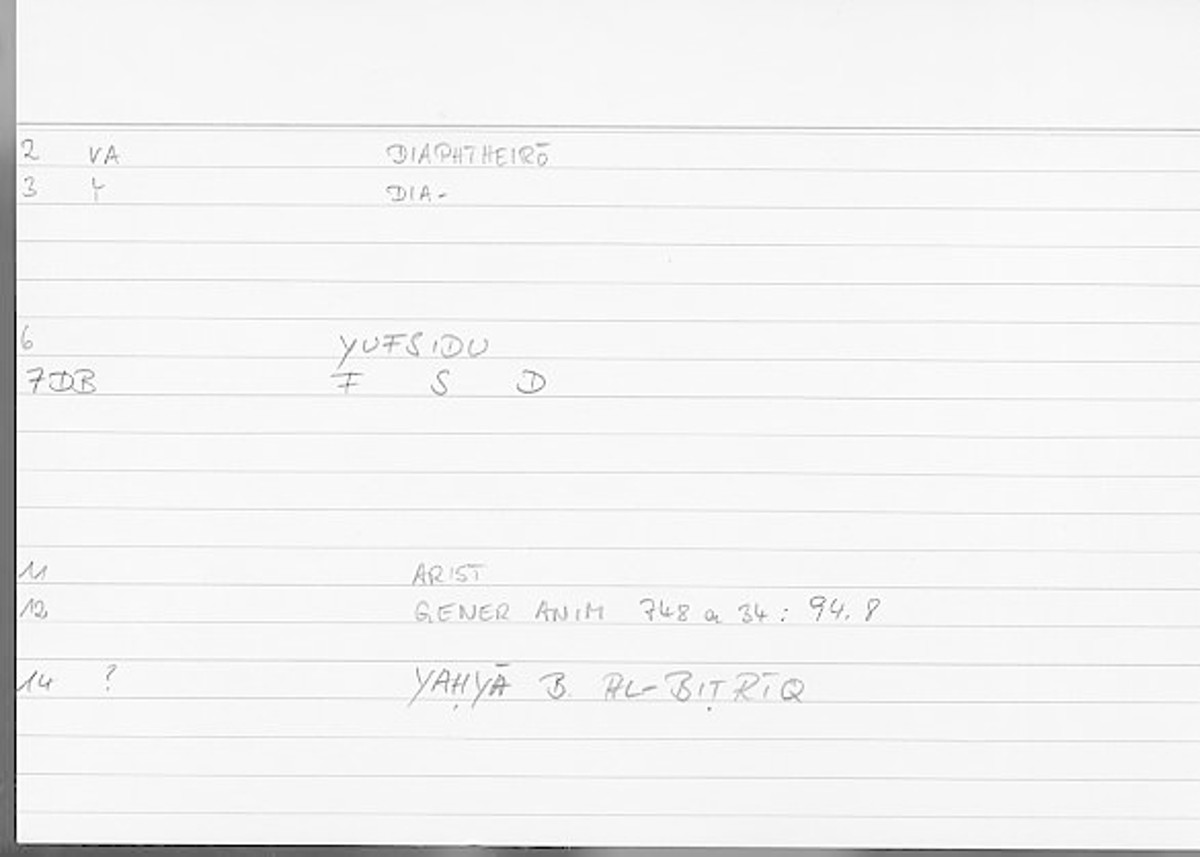 2 VA DIAPHTHEIRŌ
3 Y DIA-
6 YUFSIDU
7DB F S D
11 ARIST
12 GENER ANIM 748 a 34 : 94.8
14 ? YAḤYĀ B. AL-BIṬRĪQ